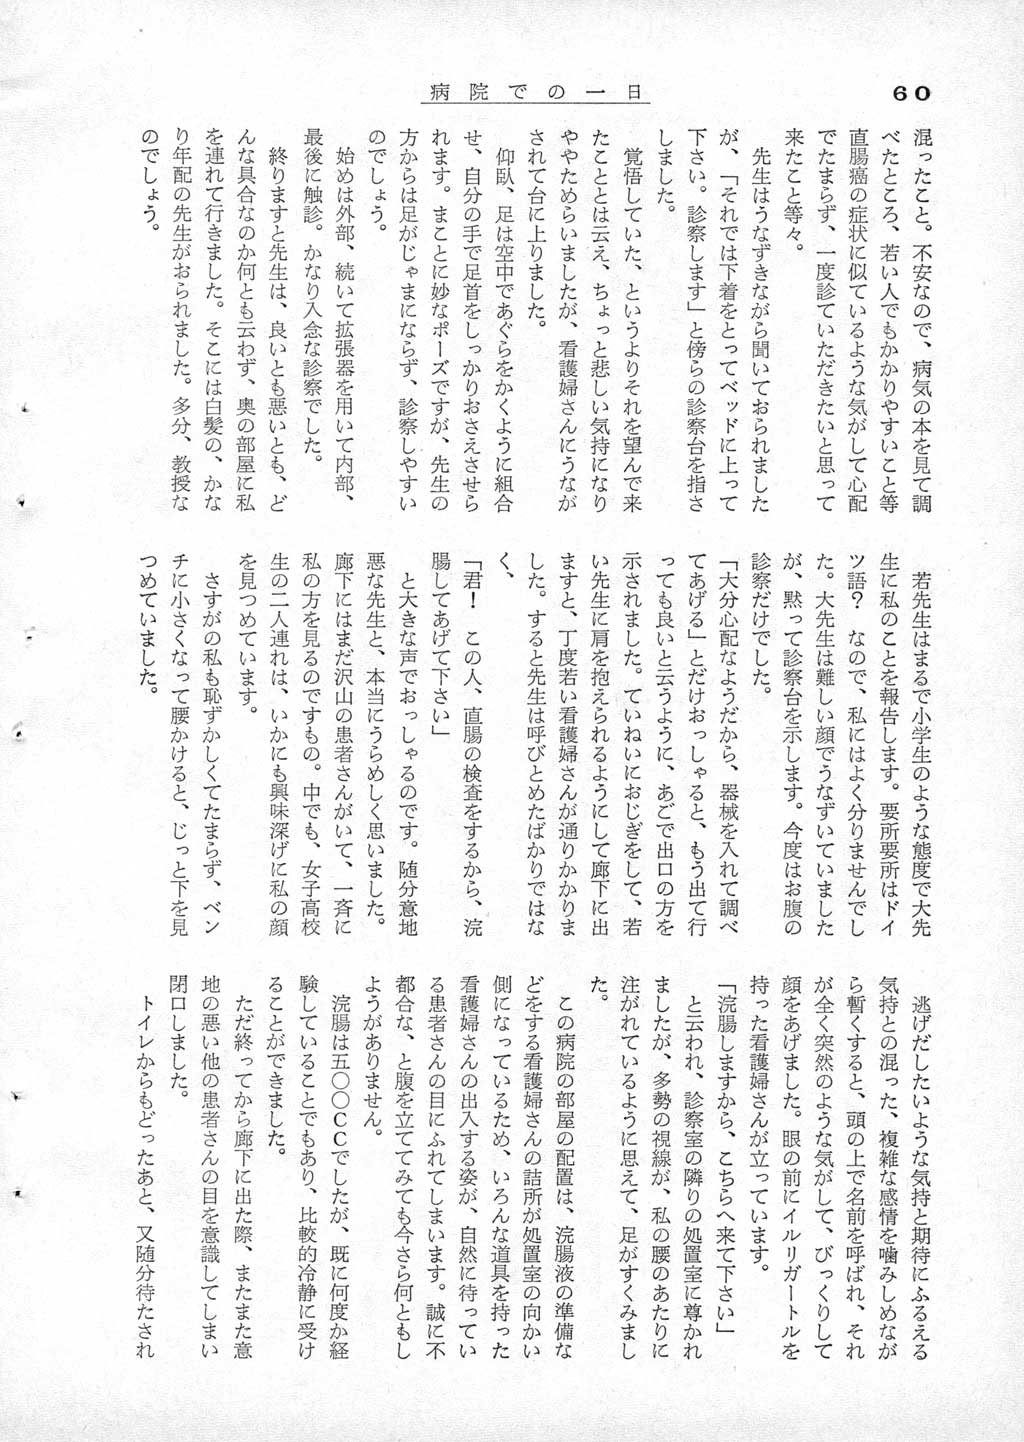 病院での一日
60
混ったこと。不安なので、病気の本を見て調
べたところ、若い人でもかかりやすいこと等
直腸癌の症状に似ているような気がして心配
でたまらず、一度診ていただきたいと思って
来たこと等々。
先生はうなずきながら聞いておられました
が、「それでは下着をとってベッドに上って
下さい。診察します」と傍らの診察台を指さ
しました。
覚悟していた、というよりそれを望んで来
たこととは云え、ちょっと悲しい気持になり
ややためらいましたが、看護婦さんにうなが
されて台に上りました。
仰臥、足は空中であぐらをかくように組合
せ、自分の手で足首をしっかりおさえさせら
れます。まことに妙なポーズですが、先生の
方からは足がじゃまにならず、診察しやすい
のでしょう。
始めは外部、続いて拡張器を用いて内部、
最後に触診。かなり入念な診察でした。
終りますと先生は、良いとも悪いとも、ど
んな具合なのか何とも云わず、奥の部屋に私
を連れて行きました。そこには白髪の、かな
り年配の先生がおられました。多分、教授な
のでしょう。
若先生はまるで小学生のような態度で大先
生に私のことを報告します。要所要所はドイ
ツ語？　なので、私にはよく分りませんでし
た。大先生は難しい顔でうなずいていました
が、黙って診察台を示します。今度はお腹の
診察だけでした。
「大分心配なようだから、器械を入れて調べ
てあげる」とだけおっしゃると、もう出て行
っても良いと云うように、あごで出口の方を
示されました。ていねいにおじぎをして、若
い先生に肩を抱えられるようにして廊下に出
ますと、丁度若い看護婦さんが通りかかりま
した。すると先生は呼びとめたばかりではな
く、
「君！　この人、直腸の検査をするから、浣
腸してあげて下さい」
と大きな声でおっしゃるのです。随分意地
悪な先生と、本当にうらめしく思いました。
廊下にはまだ沢山の患者さんがいて、一斉に
私の方を見るのですもの。中でも、女子高校
生の二人連れは、いかにも興味深げに私の顔
を見つめています。
さすがの私も恥ずかしくてたまらず、ベン
チに小さくなって腰かけると、じっと下を見
つめていました。
逃げだしたいような気持と期待にふるえる
気持との混った、複雑な感情を噛みしめなが
ら暫くすると、頭の上で名前を呼ばれ、それ
が全く突然のような気がして、びっくりして
顔をあげました。眼の前にイルリガートルを
持った看護婦さんが立っています。
「浣腸しますから、こちらへ来て下さい」
と云われ、診察室の隣りの処置室に導かれ
ましたが、多勢の視線が、私の腰のあたりに
注がれているように思えて、足がすくみまし
た。
この病院の部屋の配置は、浣腸液の準備な
どをする看護婦さんの詰所が処置室の向かい
側になっているため、いろんな道具を持った
看護婦さんの出入する姿が、自然に待ってい
る患者さんの目にふれてしまいます。誠に不
都合な、と腹を立ててみても今さら何ともし
ようがありません。
浣腸は五〇〇ＣＣでしたが、既に何度か経
験していることでもあり、比較的冷静に受け
ることができました。
ただ終ってから廊下に出た際、またまた意
地の悪い他の患者さんの目を意識してしまい
閉口しました。
トイレからもどったあと、又随分待たされ